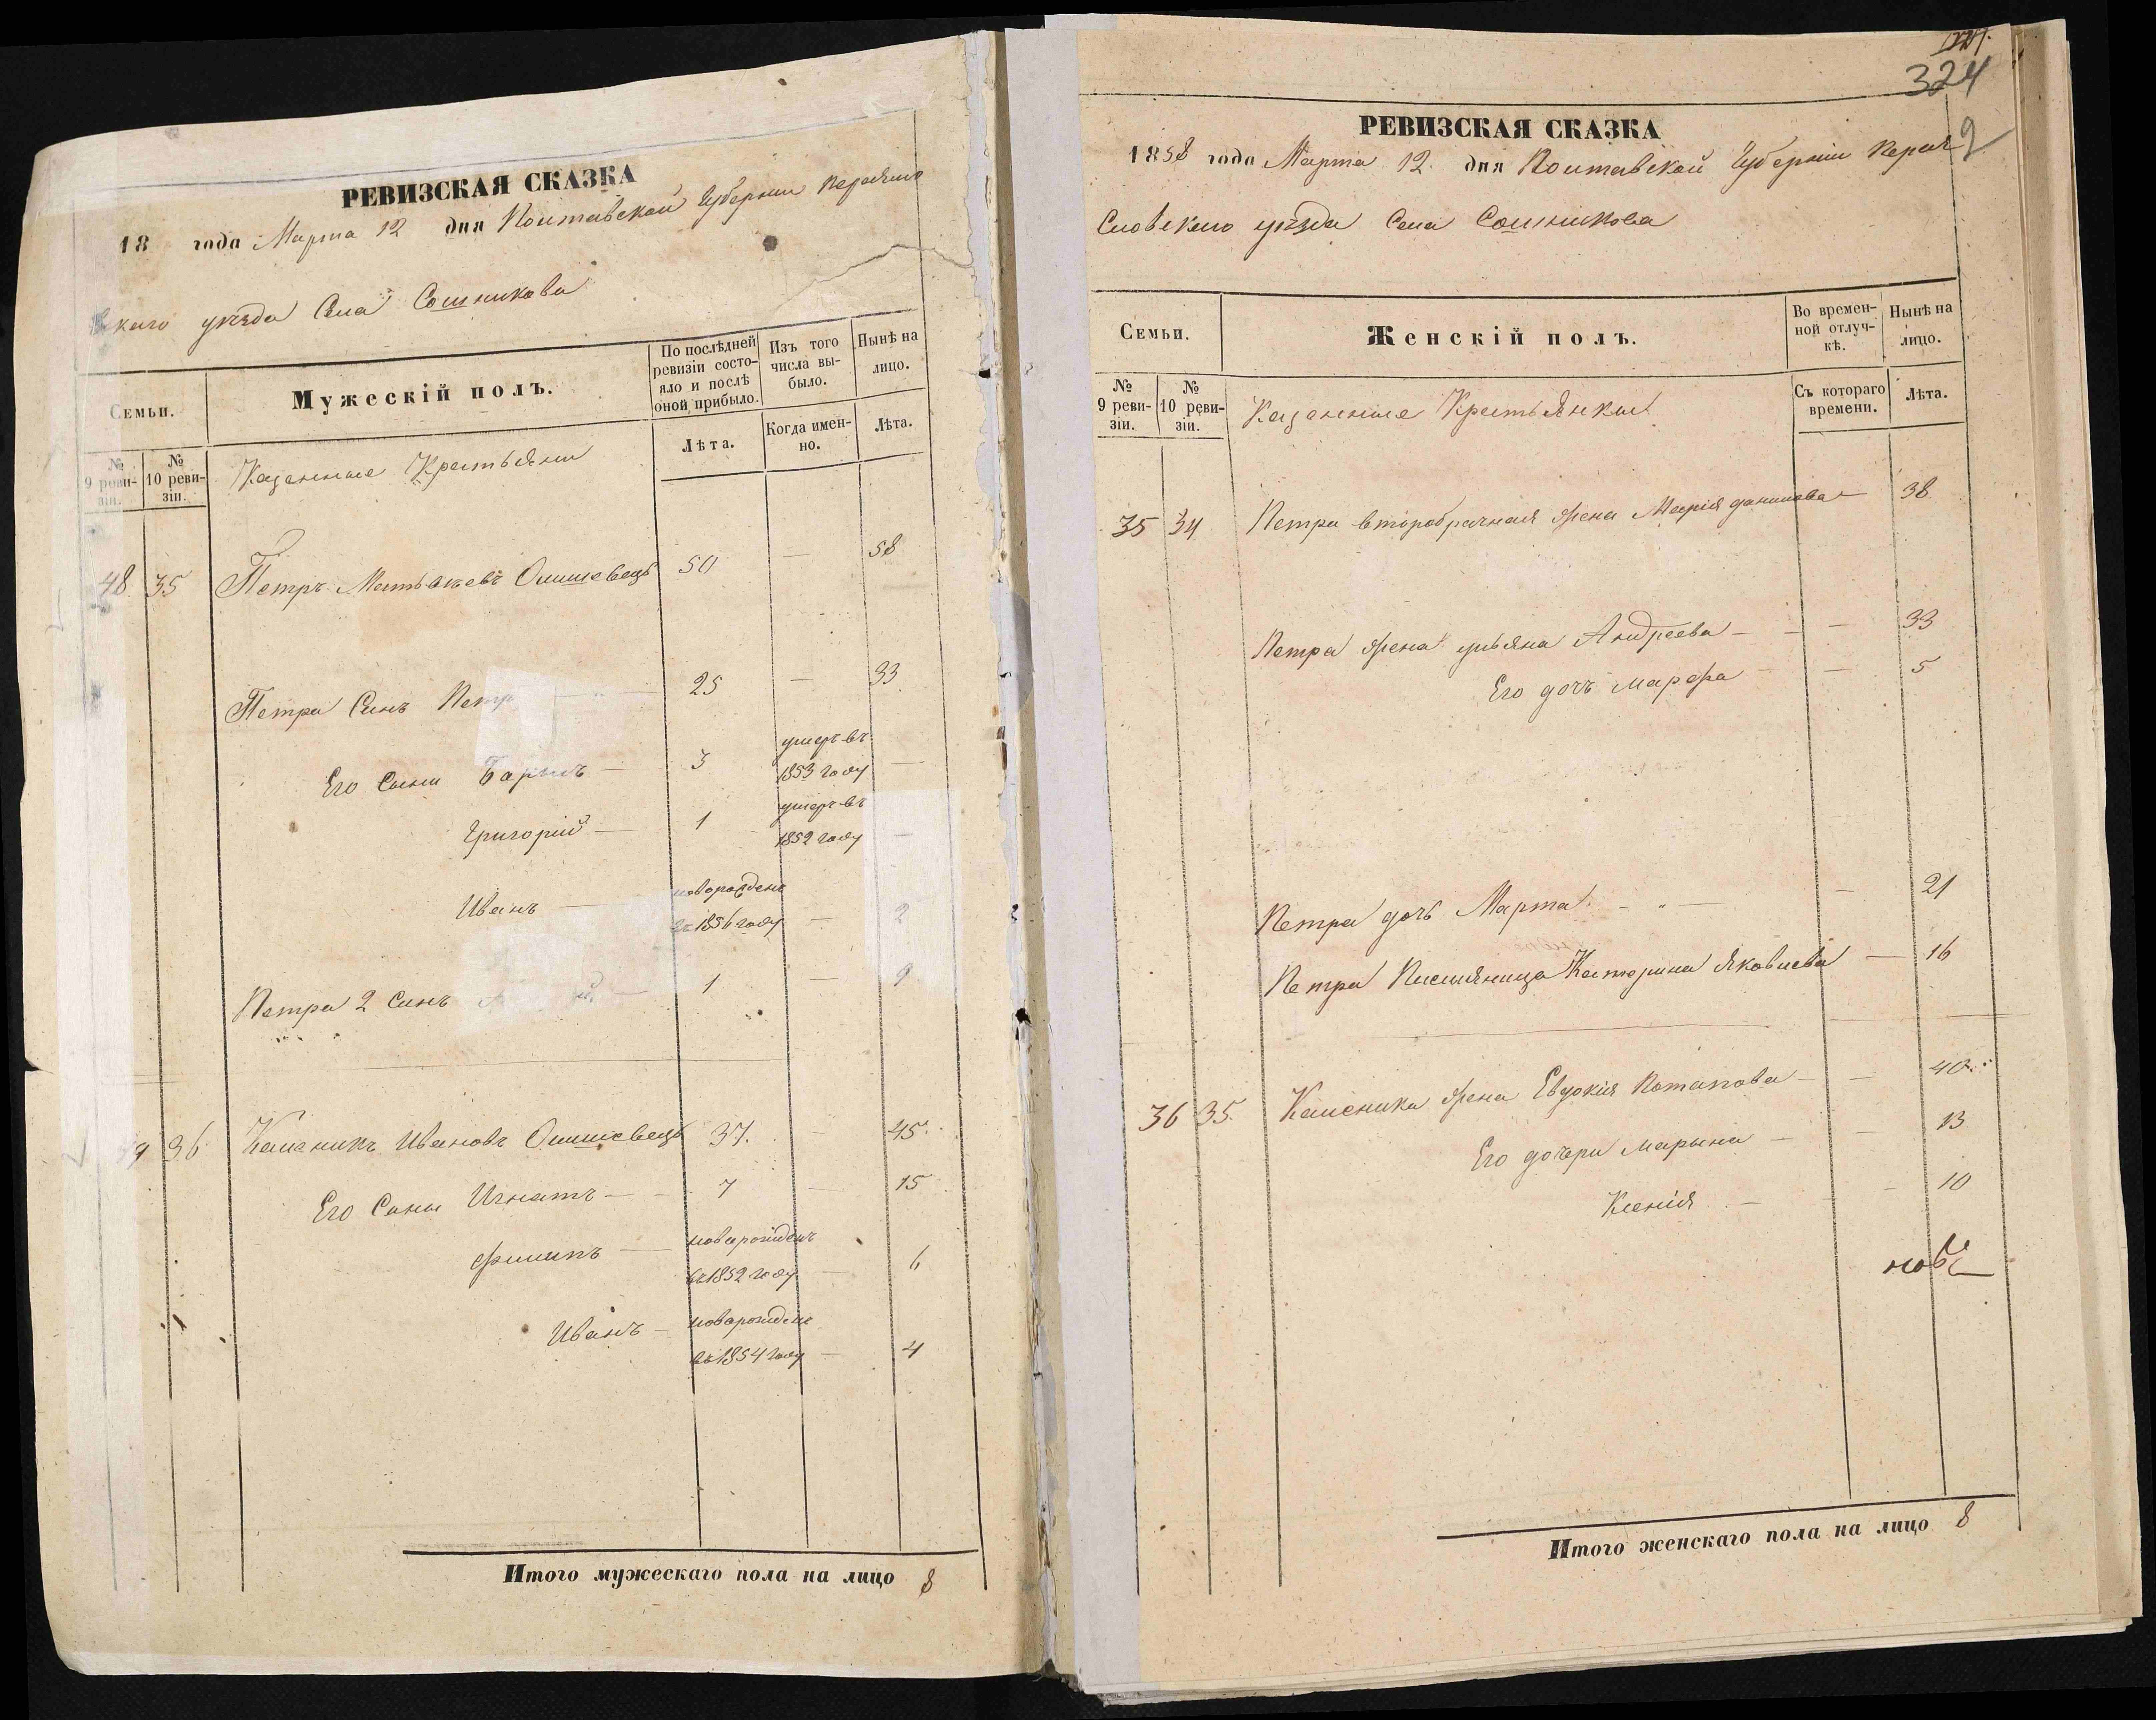 РЕВИЗСКАЯ СКАЗКА
18 года Марта 12 дня Полтавской Губернии Переясло
вскаго уезда Села Сошникова
Семьи.
Мужескій полъ.
По послѣдней ревизіи состояло и послѣ оной прибыло.
Изъ того числа выбыло.
Нынѣ на лицо.
№ 9 ревизіи.
№ 10 ревизіи.
Казенные Крестьяни
Лѣта.
Когда именно.
Лѣта.
48 35 Петръ Матвѣевъ Олишевецъ 50 — 58
Петра Синъ Петр — 25 — 33
Его Сыни — 3 умеръ въ 1853 году —
Григорій — 1 умеръ въ 1852 году —
Иванъ — новорожденъ въ 1856 году — 2
Петра 2 Синъ — 1 — 9
9 36 Каленикъ Ивановъ Олишевецъ 37. — 45
Его Сыны Игнатъ — 7 — 15
Филипъ — новорожденъ въ 1852 году — 6
Иванъ — новорожденъ въ 1854 году — 4
Итого мужескаго пола на лицо 8
324
9
РЕВИЗСКАЯ СКАЗКА
1858 года Марта 12. дня Полтавской Губерніи Перея
словскаго уезда Села Сошникова
Семьи.
Женскій полъ.
Во временной отлучкѣ.
Нынѣ на лицо.
№ 9 ревизіи.
№ 10 ревизіи.
Казенные Крестьянки
Съ котораго времени.
Лѣта.
35 34 Петра второбрачная жена Марія данилова — 38
Петра жена ульяна Андреева — — 33
Его дочь Марфа — — 5
Петра дочь Марта — — 21
Петра Племяница Катерина Яковлева — 16
36 35. Каленика жена Евдокія Потапова — — 40
Его дочери Марына — — 13
Ксенія — — 10
Итого женскаго пола на лицо 8